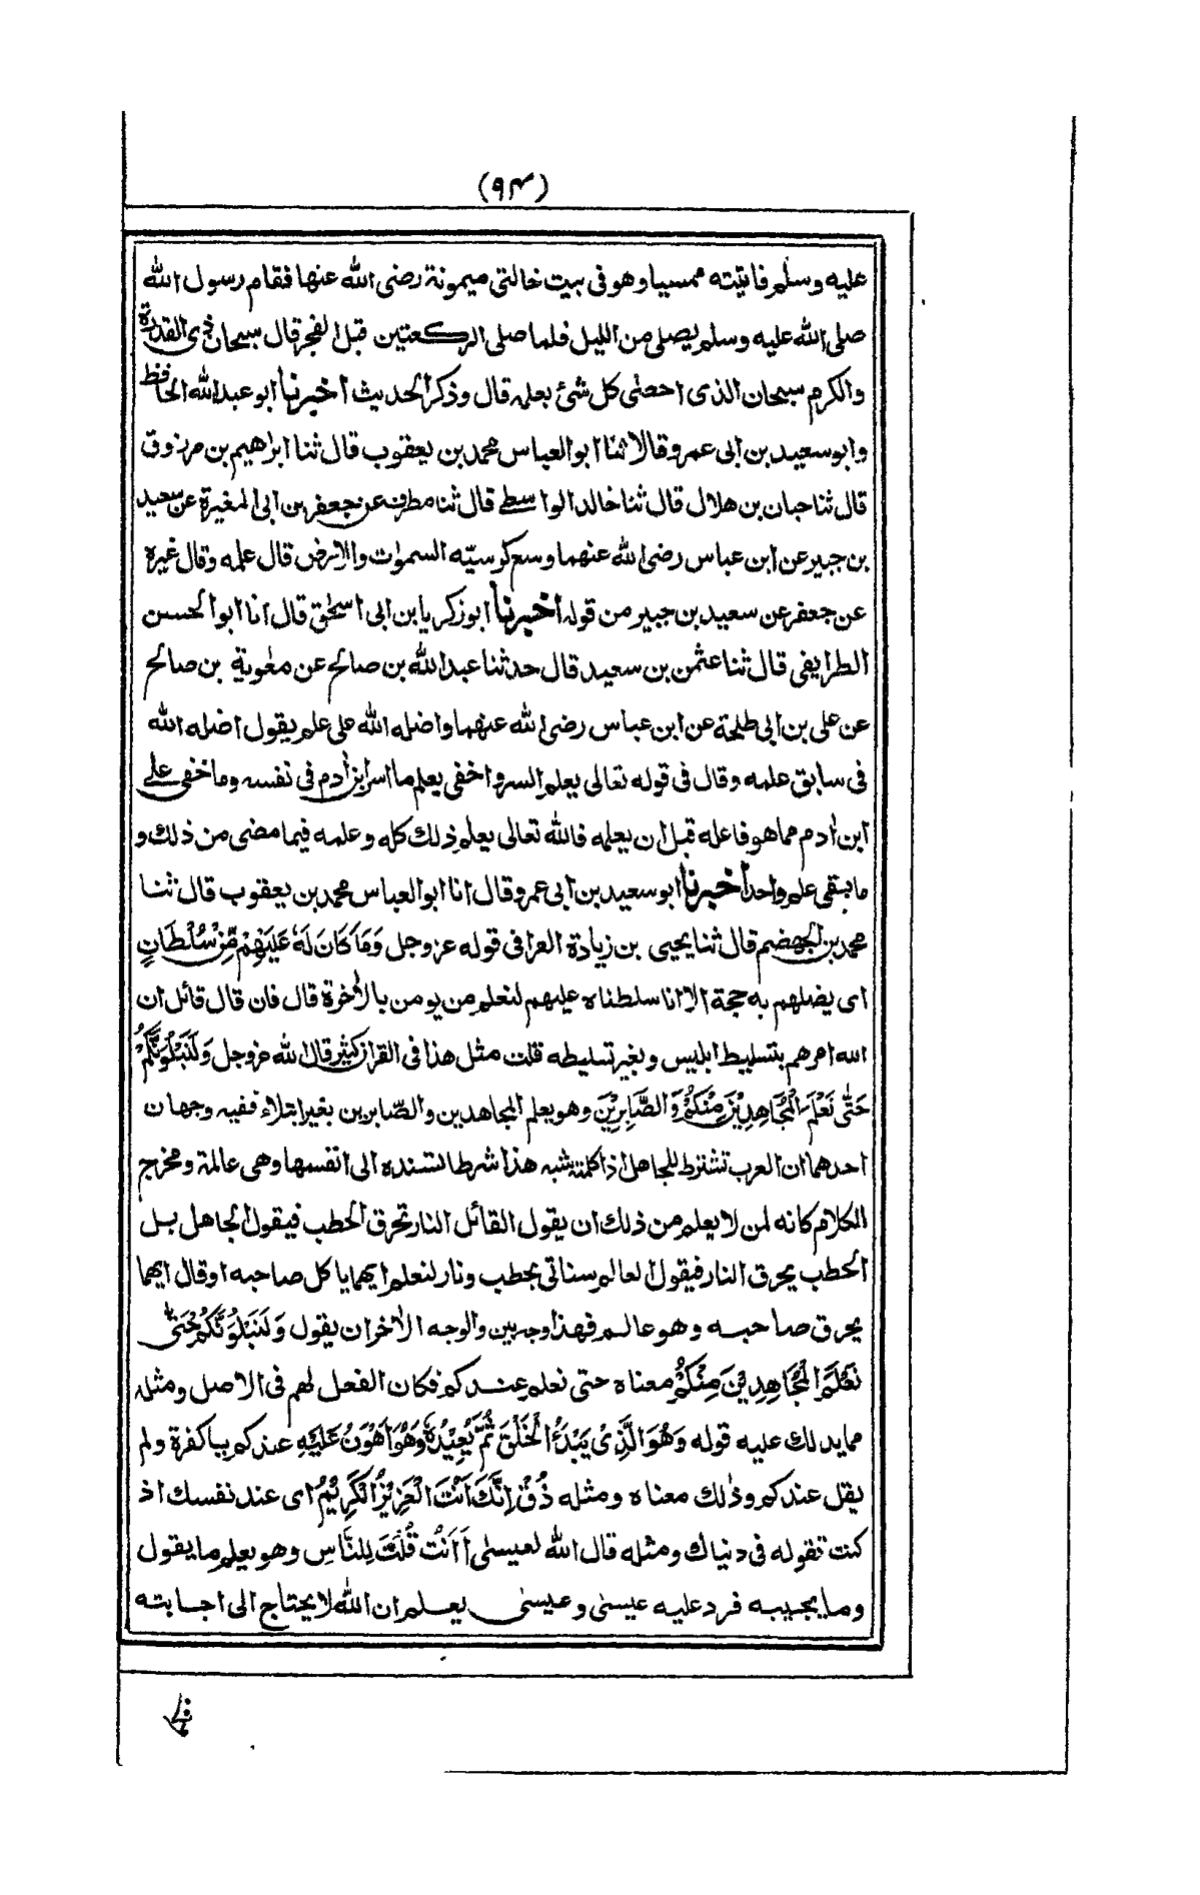 (٩٤)
عليه وسلم فاتيته ممسيا وهو فى بيت خالتى ميمونة رضى الله عنها فقام رسول الله
صلى الله عليه وسلم يصلى من الليل فلما صلى الركعتين قبل الفجر قال سبحان ذى القدرة
والكرم سبحان الذى احصٰى كل شئ بعلمه قال وذكر الحديث اخبرنا ابو عبد الله الحافظ
وابو سعيد بن ابى عمرو قالا ثنا ابو العباس محمد بن يعقوب قال ثنا ابراهيم بن مرزوق
قال ثنا حبان بن هلال قال ثنا خالد الواسطے قال ثنا مطرف عن جعفر بن ابى المغيرة عن سعيد
بن جبير عن ابن عباس رضى الله عنهما وسع كرسيّه السمٰوٰت والارض قال علمه وقال غيره
عن جعفر عن سعيد بن جبير من قوله اخبرنا ابو زكريا بن ابى اسحٰق قال انا ابو الحسن
الطرايفى قال ثنا عثمن بن سعيد قال حدثنا عبد الله بن صالح عن معٰوية بن صالح
عن على بن ابى طلحة عن ابن عباس رضى الله عنهما واضله الله على علم يقول اضله الله
فى سابق علمه وقال فى قوله تعالى يعلم السر واخفى يعلم ما اسر ابن اٰدم فى نفسه وما خفى علے
ابن اٰدم مما هو فاعله قبل ان يعلمه فالله تعالى يعلم ذلك كله وعلمه فيما مضى من ذلك و
ما يبقى علم واحد اخبرنا ابو سعيد بن ابى عمرو قال انا ابو العباس محمد بن يعقوب قال ثنا
محمد بن الجهضم قال ثنا يحيى بن زيادة الفرا فى قوله عز وجل وَمَا كَانَ لَهٗ عَلَيْهِمْ مِّنْ سُلْطَانٍ
اى يضلهم به حجة الا انا سلطناه عليهم لنعلم من يومن بالاٰخرة قال فان قال قائل ان
الله امرهم بتسليط ابليس وبغير تسليطه قلت مثل هذا فى القراٰن كثير قال الله عز وجل وَلَنَبْلُوَنَّكُمْ
حَتّٰى نَعْلَمَ الْمُجَاهِدِيْنَ مِنْكُمْ وَالصَّابِرِيْنَ وهو يعلم المجاهدين والصّابرين بغير ابتلاء ففيه وجهان
احدهما ان العرب تشترط للجاهل اذا كلمته شبه هذا شرطا تسنده الى انفسها وهى عالمة ومخرج
الكلام كانه لمن لا يعلم من ذلك ان يقول القائل النار تحرق الحطب فيقول الجاهل بل
الحطب يحرق النار فيقول العالم سناتى بحطب ونار لنعلم ايهما ياكل صاحبه او قال ايهما
يحرق صاحبه وهو عالم فهذا وجه بين والوجه الاٰخر ان يقول وَلَنَبْلُوَنَّكُمْ حَتّٰى
نَعْلَمَ الْمُجَاهِدِيْنَ مِنْكُمْ معناه حتى نعلم عندكم فكان الفعل لهم فى الاصل ومثله
مما يدلك عليه قوله وَهُوَ الَّذِىْ يَبْدَءُ الْخَلْقَ ثُمَّ يُعِيْدُهٗ وَهُوَ اَهْوَنُ عَلَيْهِ عندكم يا كفرة ولم
يقل عندكم وذٰلك معناه ومثله ذُقْ اِنَّكَ اَنْتَ الْعَزِيْزُ الْكَرِيْمُ اى عند نفسك اذ
كنت تقوله فى دنياك ومثله قال الله لعيسٰى أَاَنْتَ قُلْتَ لِلنَّاسِ وهو يعلم ما يقول
وما يجيبه فرد عليه عيسٰى وعيسٰى يعلم ان الله لا يحتاج الى اجابته